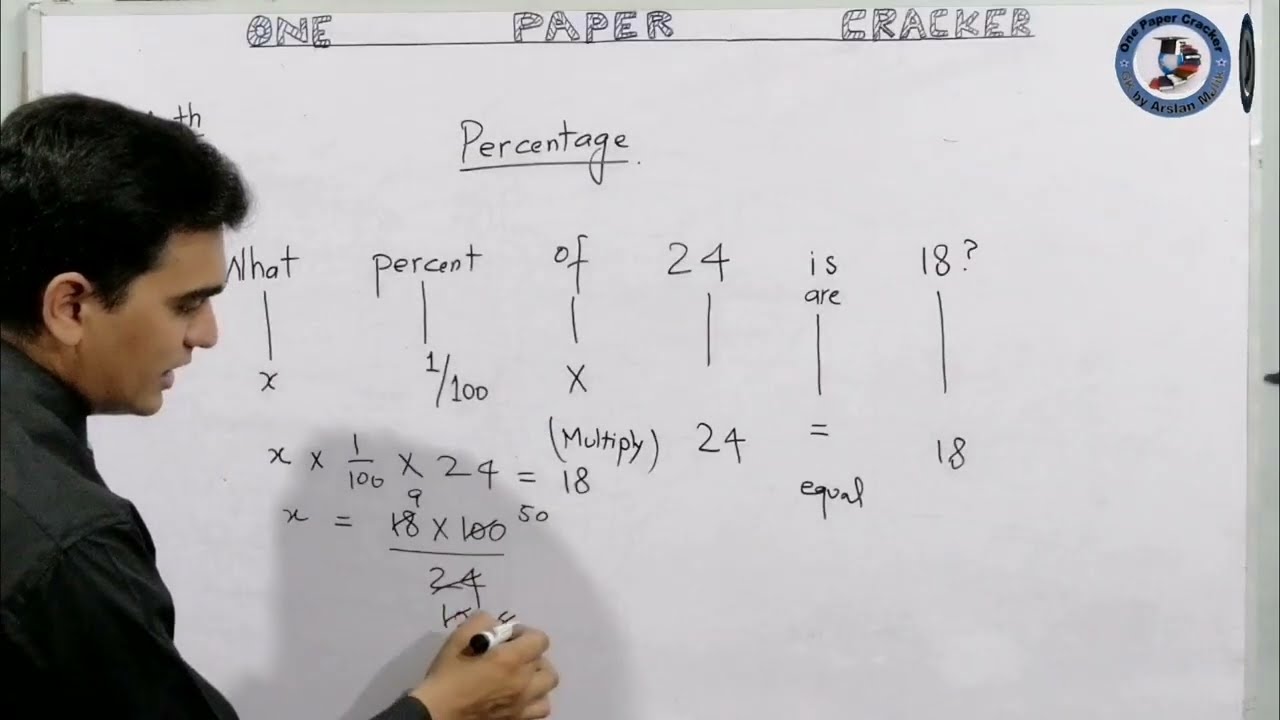 ONE PAPER CRACKER
One Paper Cracker
by Arslan Malik
Percentage.
What percent of 24 is 18?
are
x 1/100 X
(Multiply) 24 = 18
equal
x × 1/100 × 24 = 18
9 50
x = 18 × 100
24